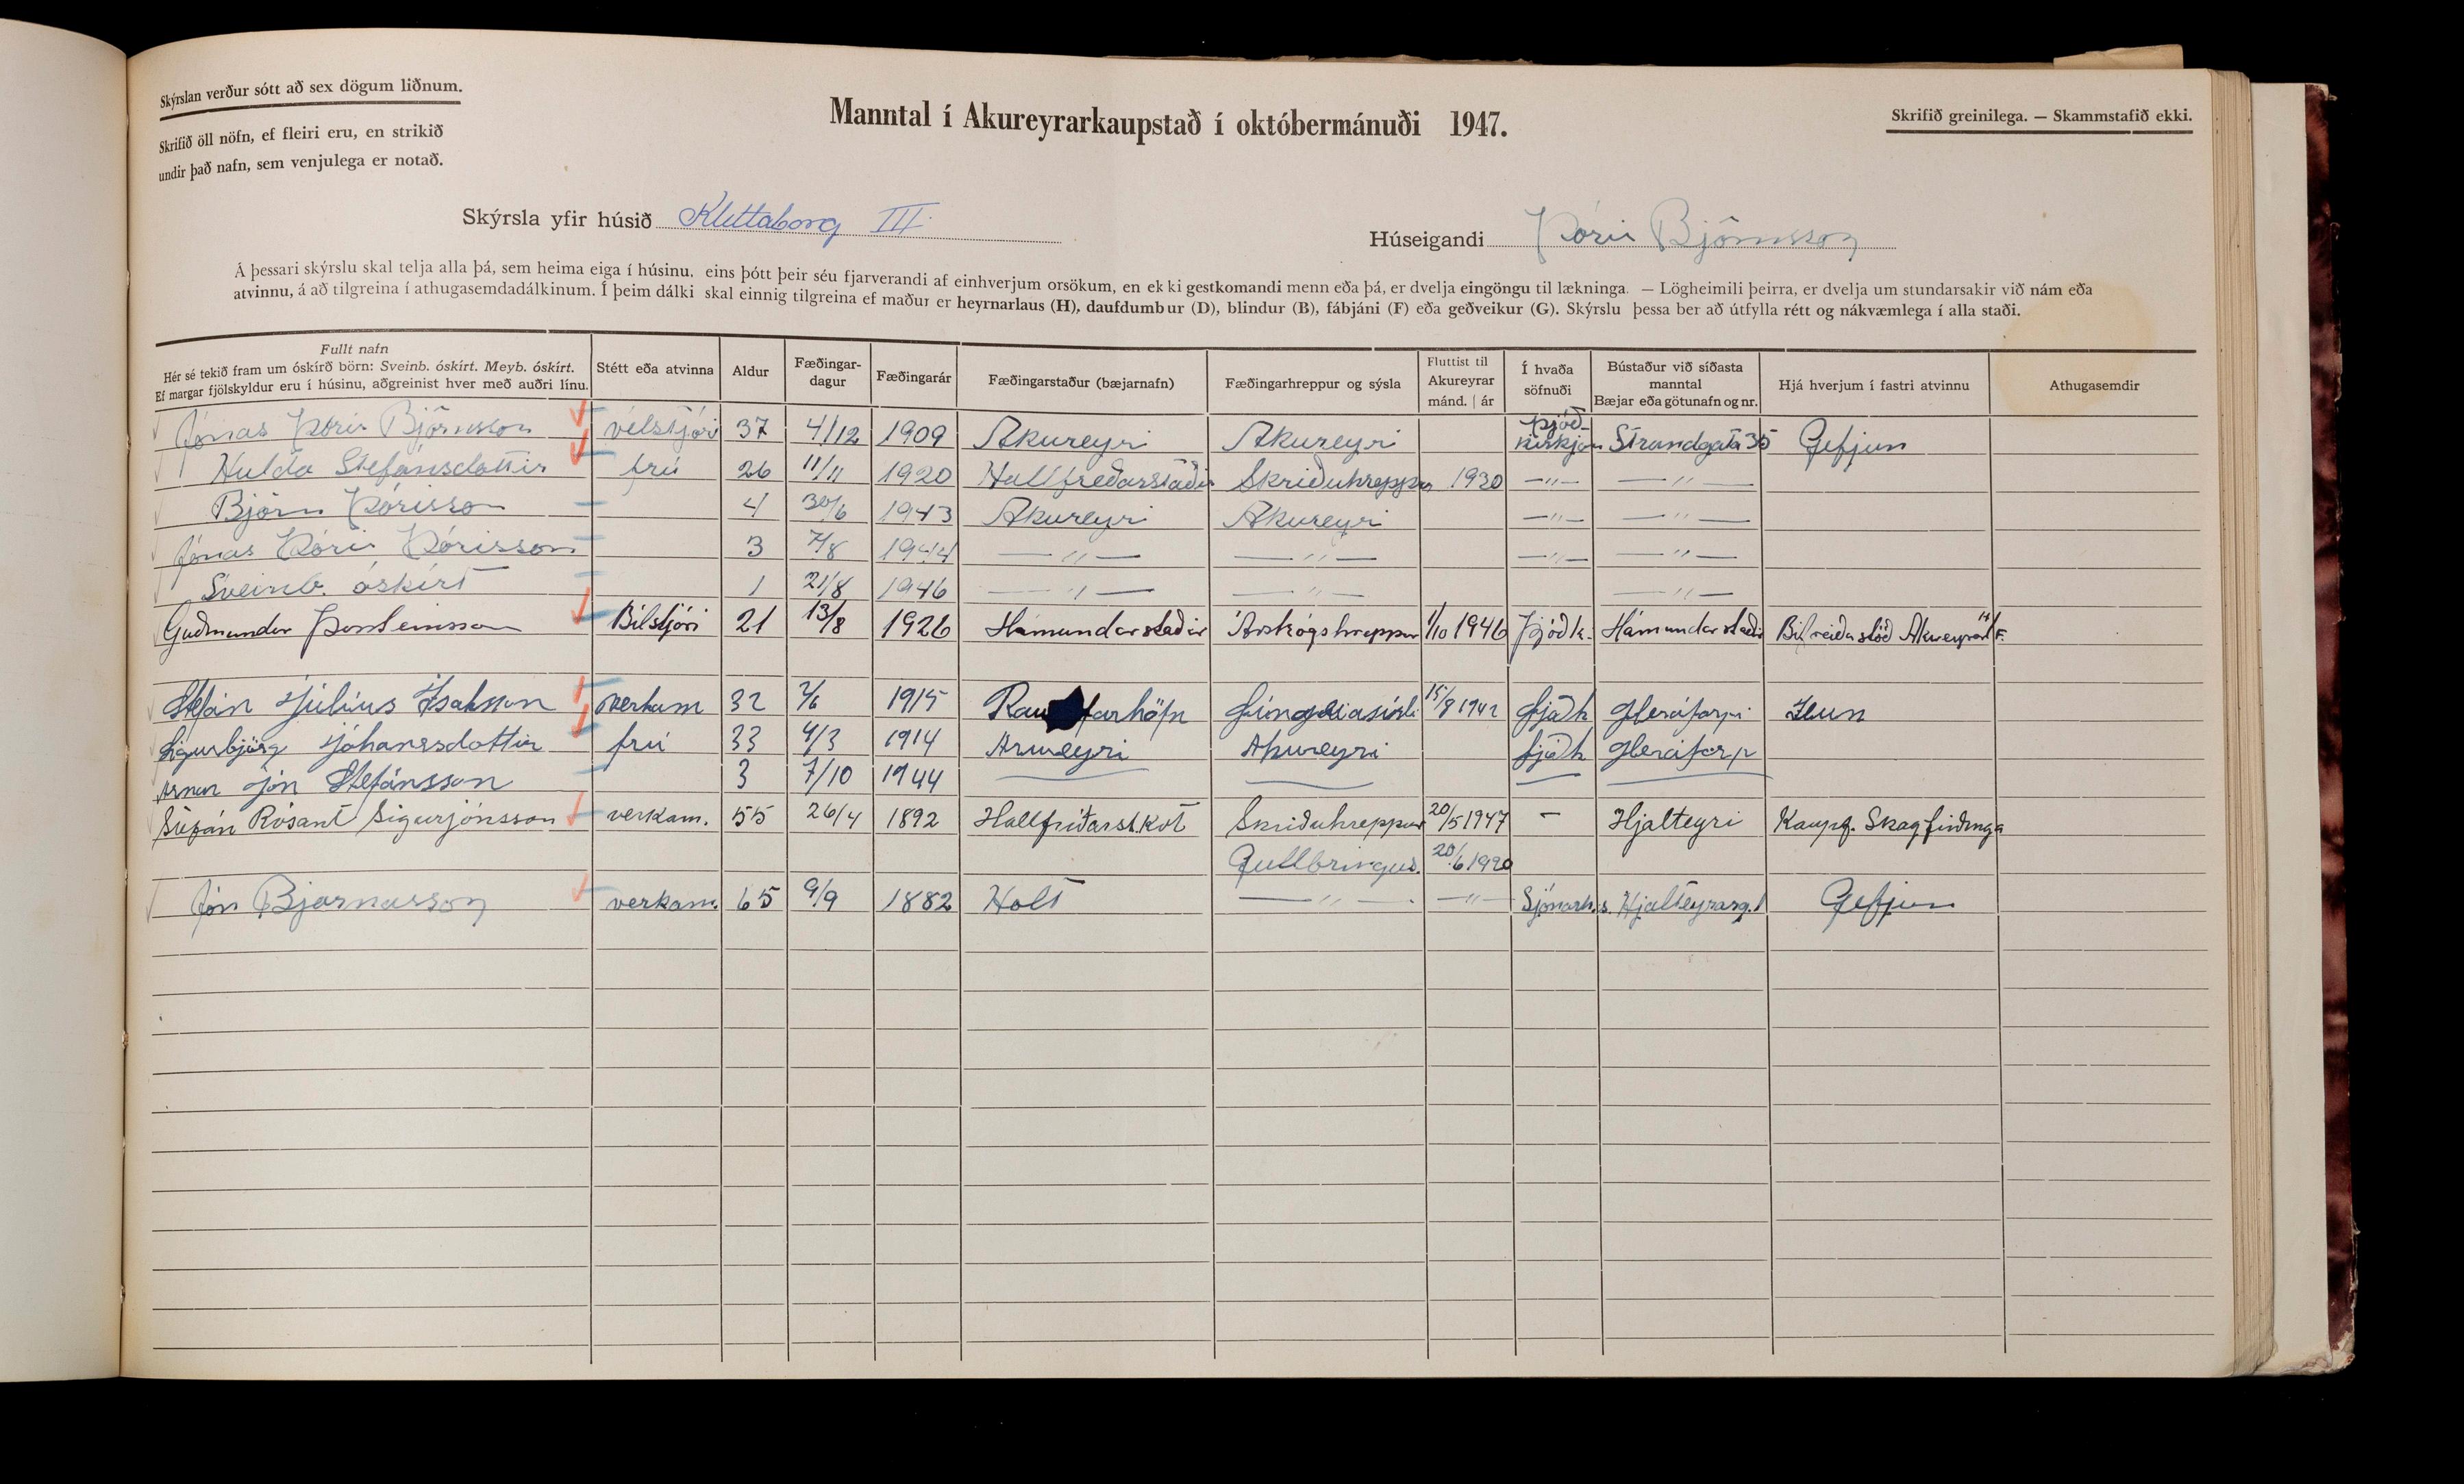 Skýrslan verður sótt að sex dögum liðnum.
Skrifið öll nöfn, ef fleiri eru, en strikið
undir það nafn, sem venjulega er notað.
Manntal í Akureyrarkaupstað í októbermánuði 1947.
Skrifið greinilega. — Skammstafið ekki.
Skýrsla yfir húsið Klettaborg III.
Húseigandi Þórir Björnsson
Á þessari skýrslu skal telja alla þá, sem heima eiga í húsinu, eins þótt þeir séu fjarverandi af einhverjum orsökum, en ekki gestkomandi menn eða þá, er dvelja eingöngu til lækninga. — Lögheimili þeirra, er dvelja um stundarsakir við nám eða
atvinnu, á að tilgreina í athugasemdadálkinum. Í þeim dálki skal einnig tilgreina ef maður er heyrnarlaus (H), daufdumbur (D), blindur (B), fábjáni (F) eða geðveikur (G). Skýrslu þessa ber að útfylla rétt og nákvæmlega í alla staði.
Fullt nafn
Hér sé tekið fram um óskírð börn: Sveinb. óskírt. Meyb. óskírt.
Ef margar fjölskyldur eru í húsinu, aðgreinist hver með auðri línu.
Stétt eða atvinna
Aldur
Fæðingar-
dagur
Fæðingarár
Fæðingarstaður (bæjarnafn)
Fæðingarhreppur og sýsla
Fluttist til
Akureyrar
mánd. | ár
Í hvaða
söfnuði
Bústaður við síðasta
manntal
Bæjar eða götunafn og nr.
Hjá hverjum í fastri atvinnu
Athugasemdir
Jónas Þórir Björnsson vélstjóri 37 4/12 1909 Akureyri Akureyri Þjóð-kirkjan Strandgata 35 Gefjun
Hulda Stefánsdottir frú 26 11/11 1920 Hallfreðarstöðir Skriðuhreppur 1930 —"— —"—
Björn Þórisson 4 30/6 1943 Akureyri Akureyri —"— —"—
Jónas Þórir Þórisson 3 7/8 1944 —"— —"— —"— —"—
Sveinb. óskírt 1 21/8 1946 —"— —"— —"—
Guðmundur Þorsteinsson Bílstjóri 21 13/8 1926 Hámundarstaðir Árskógshreppur 1/10 1946 Þjóðk. Hámundarstaðir Bifreiðastöð Akureyrar H/F.
Stefán Júlíus Ísaksson verkam 32 2/6 1915 Rau farhöfn 15/8 1942 þjóðk Gleráþorpi Iðun
Sigurbjörg Jóhannsdottir frú 33 4/3 1914 Akureyri Akureyri þjóðk Gleráþorp
Arnar Jón Stefánsson 3 7/10 1944
Stefán Rósant Sigurjónsson verkam. 55 26/4 1892 Hallfríðarst.kot Skriðuhreppur 20/5 1947 — Hjalteyri Kaupf. Skagfirðinga
Gullbringus. 20/6 1920
Jón Bjarnasson verkam. 65 9/9 1882 Holt —"— —"— Sjónarh.s. Hjalteyrarg. 1 Gefjun